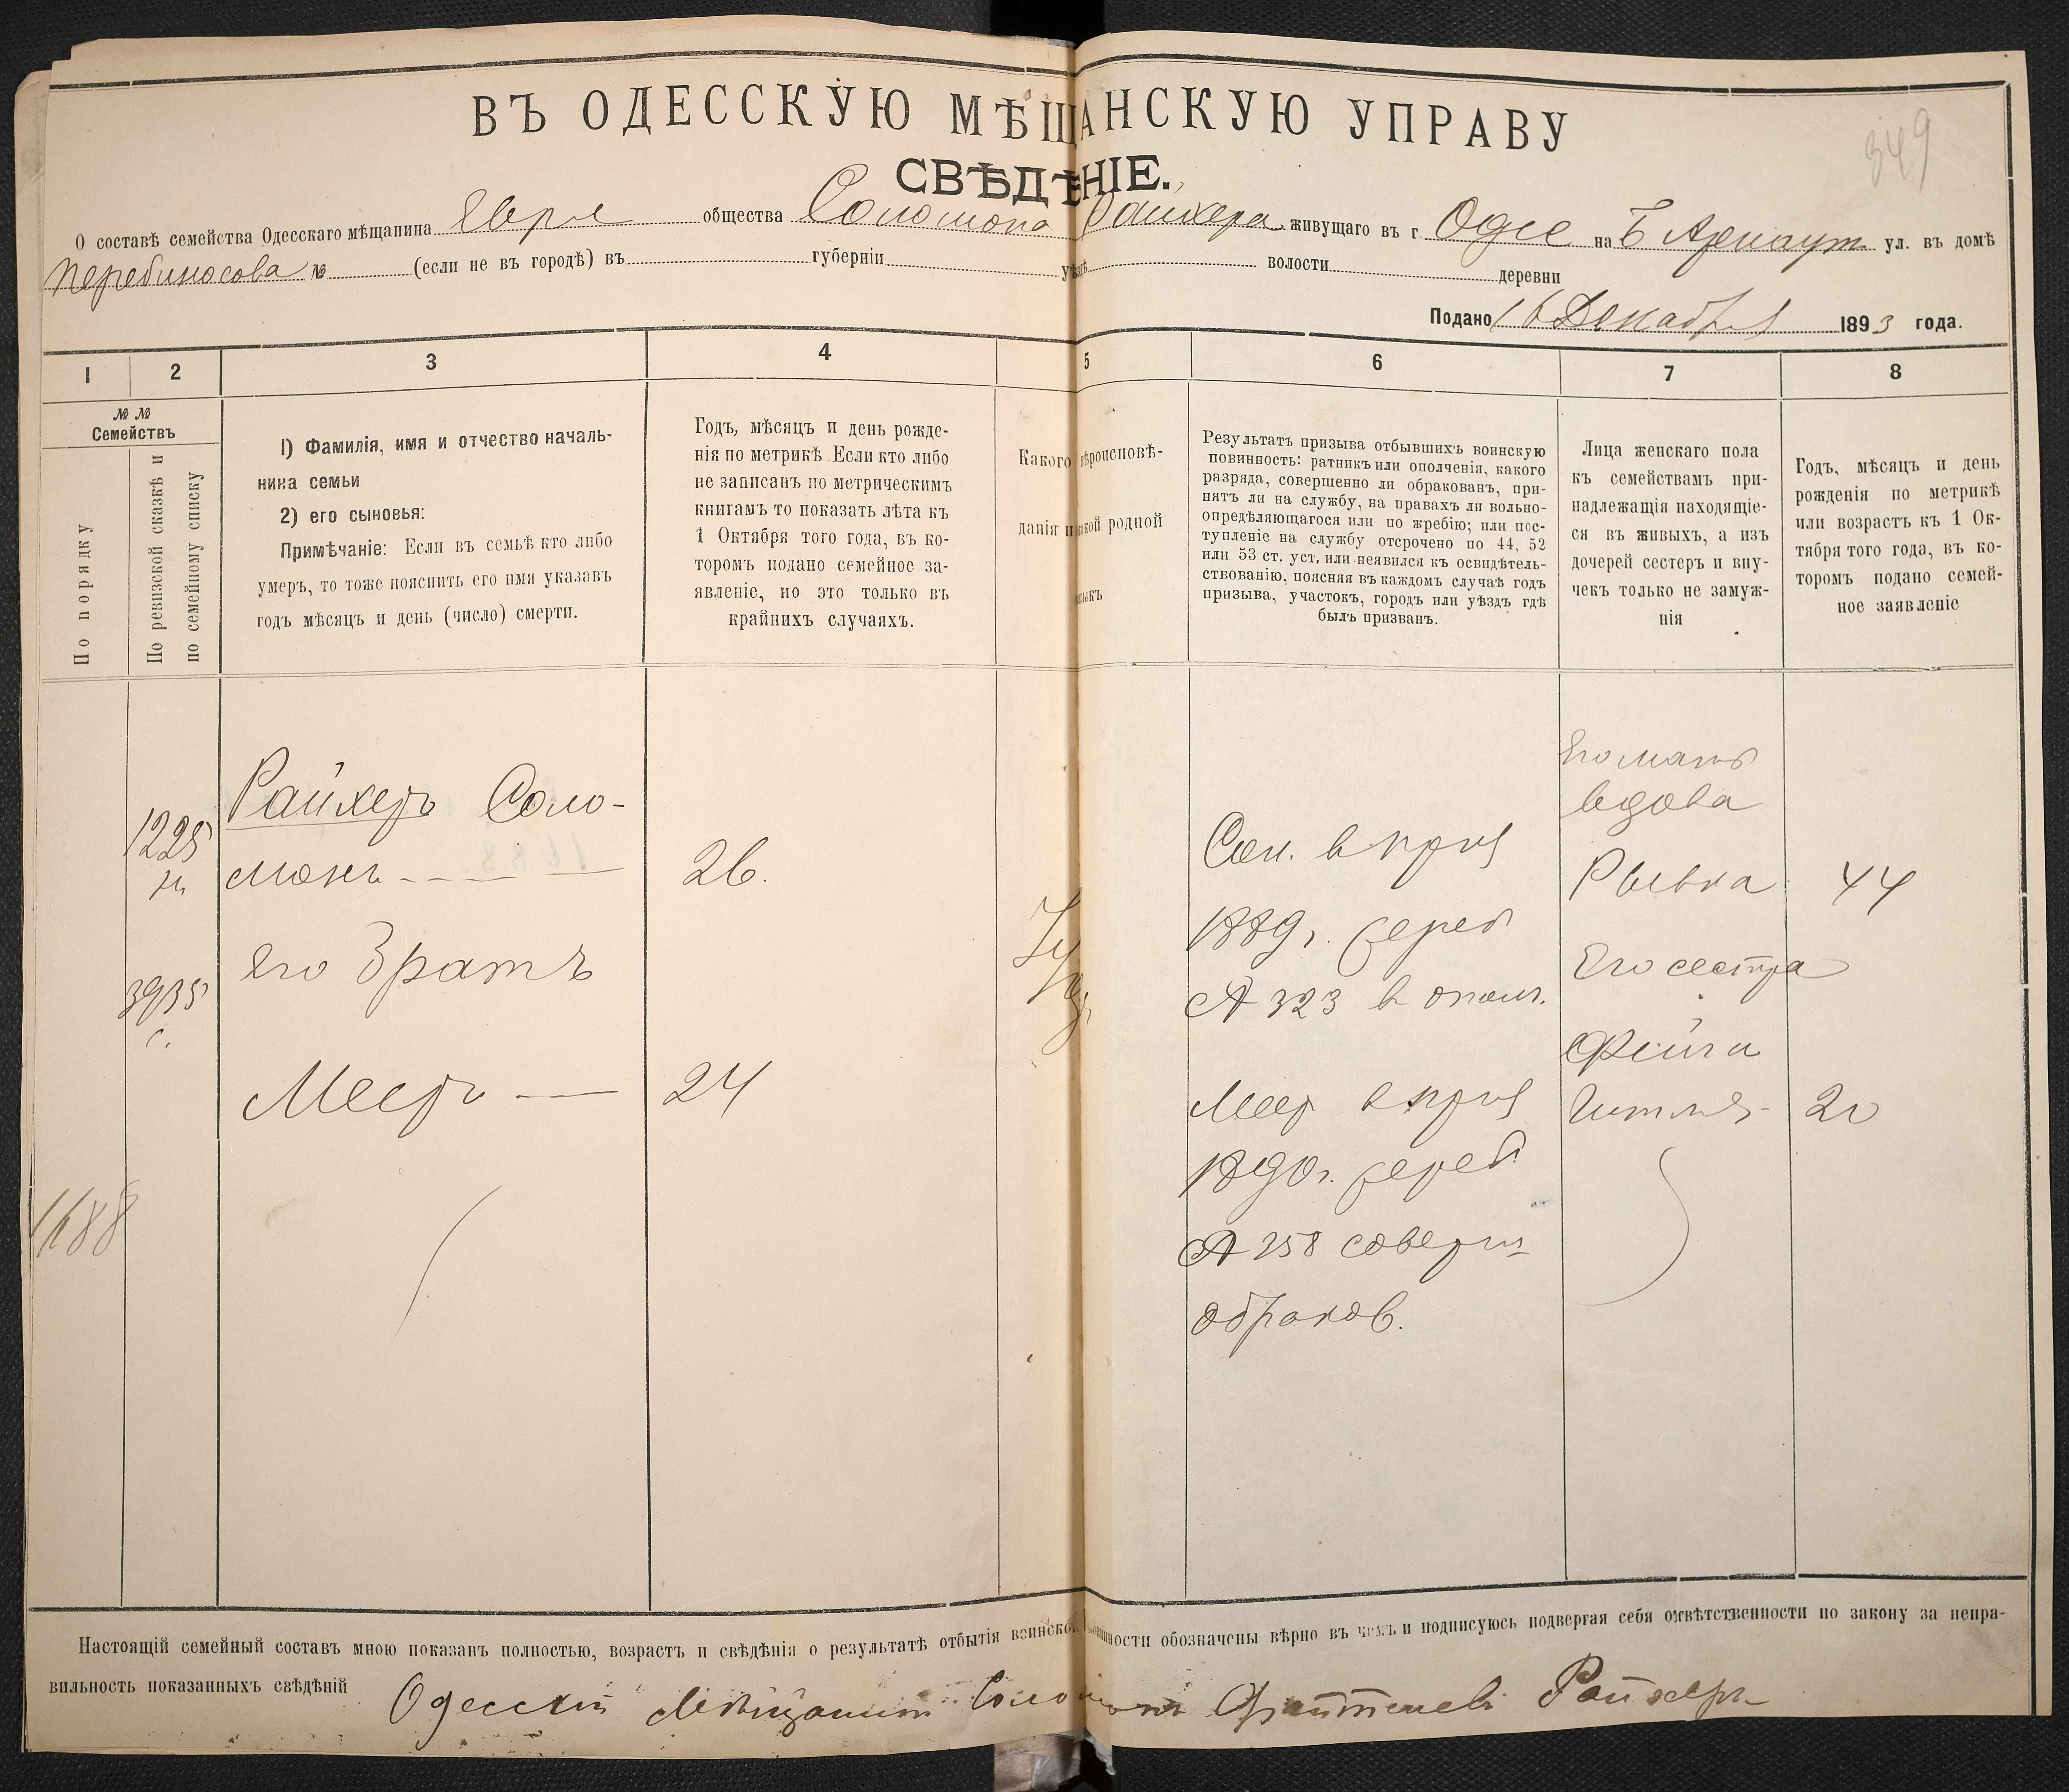 349
ВЪ ОДЕССКУЮ МѢЩАНСКУЮ УПРАВУ
СВѢДѢНІЕ.
О составѣ семейства Одесскаго мѣщанина Евре общества Соломона Райхера живущаго въ г. Одес на Б Арнаут ул. въ домѣ
Перебиносова № (если не въ городѣ) въ губерніи уѣздѣ волости деревни
Подано 16 Декабря 1893 года.
1 2 3 4 5 6 7 8
№ №
Семействъ
По порядку
По ревизской сказкѣ и
по семейному списку
1) Фамилія, имя и отчество началь-
ника семьи
2) его сыновья:
Примѣчаніе: Если въ семьѣ кто либо
умеръ, то тоже пояснить его имя указавъ
годъ мѣсяцъ и день (число) смерти.
Годъ, мѣсяцъ и день рожде-
нія по метрикѣ. Если кто либо
не записанъ по метрическимъ
книгамъ то показать лѣта къ
1 Октября того года, въ ко-
торомъ подано семейное за-
явленіе, но это только въ
крайнихъ случаяхъ.
Какого вѣроисповѣ-
данія и какой родной
языкъ
Результатъ призыва отбывшихъ воинскую
повинность: ратникъ или ополченія, какого
разряда, совершенно ли обракованъ, при-
нятъ ли на службу, на правахъ ли вольно-
опредѣляющагося или по жребію; или пос-
тупленіе на службу отсрочено по 44, 52
или 53 ст. уст. или неявился къ освидѣтель-
ствованію, поясняя въ каждомъ случаѣ годъ
призыва, участокъ, городъ или уѣздъ гдѣ
былъ призванъ.
Лица женскаго пола
къ семействамъ при-
надлежащія находящіе-
ся въ живыхъ, а изъ
дочерей сестеръ и вну-
чекъ только не замуж-
нія
Годъ, мѣсяцъ и день
рожденія по метрикѣ
или возрастъ къ 1 Ок-
тября того года, въ ко-
торомъ подано семей-
ное заявленіе
1225
3935
с.
1688
Райхеръ Соло-
монъ
Его Братъ
Мееръ
26.
24
Сол. в приз
1889 г. жереб
№ 323 в опол.
Меер в приз
1890 г. жереб
№ 258 соверш
обраков.
Его мать
вдова
Рывка
Его сестра
Фейга
Гитля
44
20
Настоящій семейный составъ мною показанъ полностью, возрастъ и свѣдѣнія о результатѣ отбытія воинской повинности обозначены вѣрно въ чемъ и подписуюсь подвергая себя отвѣтственности по закону за непра-
вильность показанныхъ свѣдѣній Одесскій Мѣщанинъ Соломонъ Райхеръ